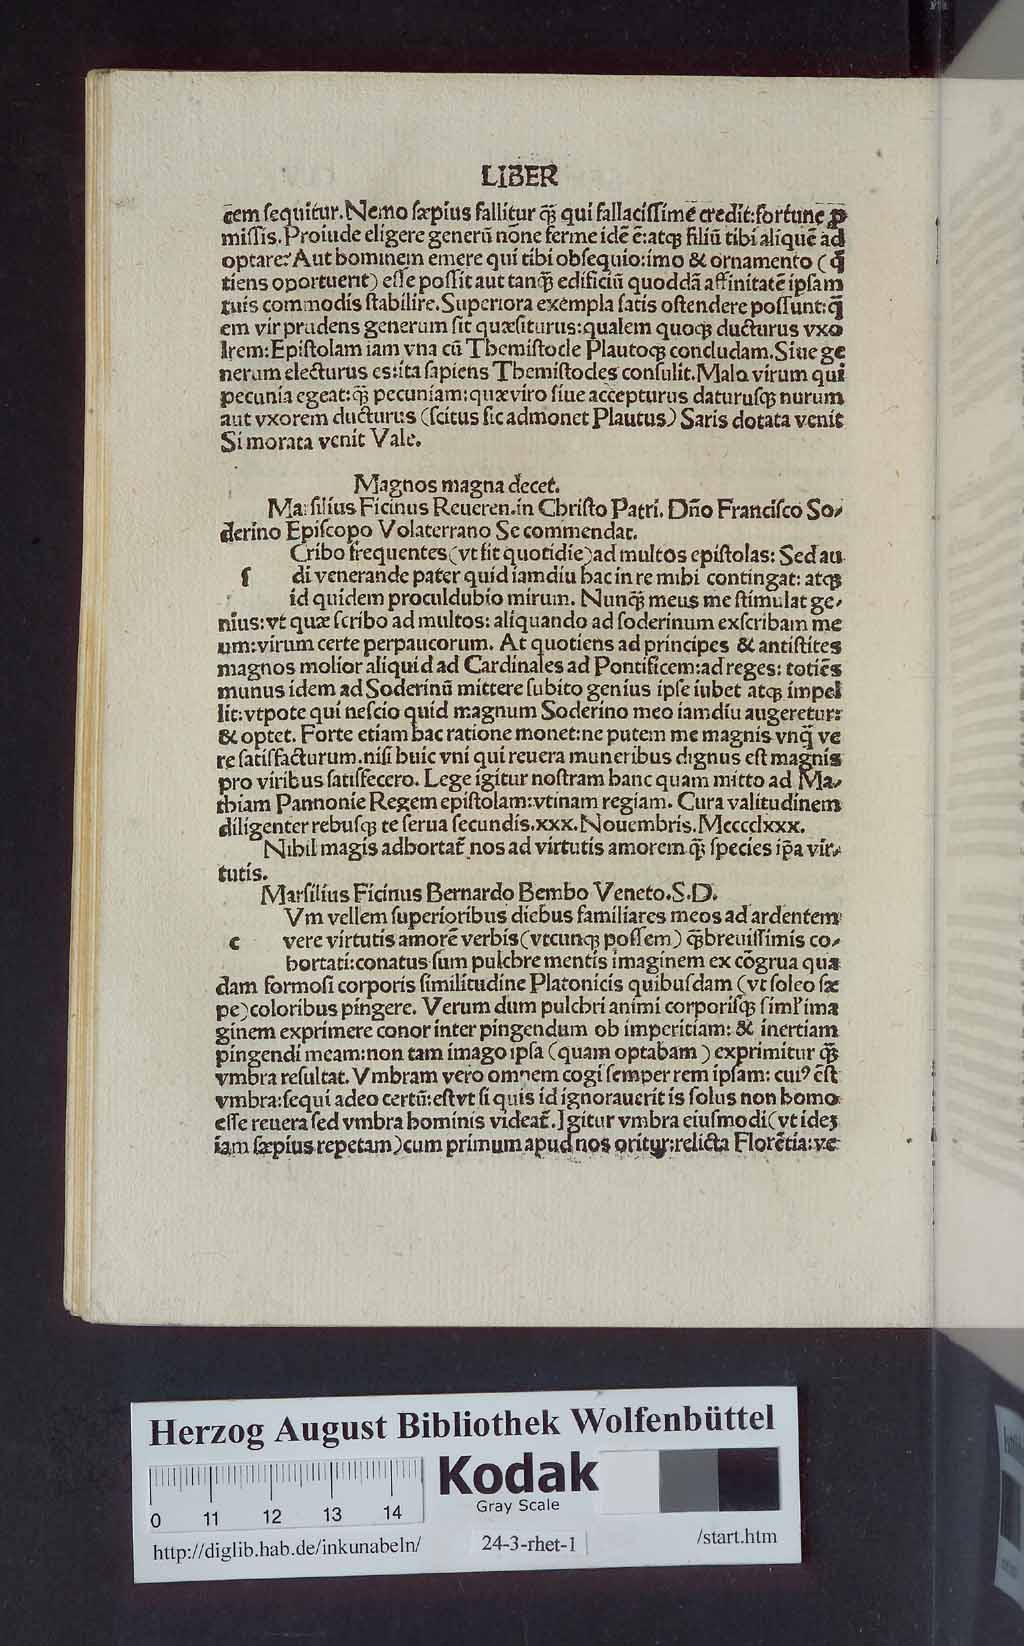 LIBER
cem sequitur. Nemo sæpius fallitur q̃ꝫ qui fallacissime credit: fortune ꝓ
missis. Proiude eligere generũ nõne ferme idẽ ẽ: atqꝫ filiũ tibi aliquẽ ad
optare? Aut hominem emere qui tibi obsequio: imo & ornamento (q̃
tiens oportuerit) esse possit aut tanq̃ꝫ edificiũ quoddã affinitatẽ ipsam
tuis commodis stabilire. Superiora exempla satis ostendere possunt: q̃
em vir prudens generum sit quæsiturus: qualem quoqꝫ ducturus vxo
lrem: Epistolam iam vna cũ Themistocle Plautoqꝫ concludam. Siue ge
nerum electurus es: ita sapiens Themistocles consulit. Malo virum qui
pecunia egeat: q̃ꝫ pecuniam: quæ viro siue accepturus daturusqꝫ nurum
aut vxorem ducturus (scitus sic admonet Plautus) Saris dotata venit
Si morata venit Vale.
Magnos magna decet.
Marsilius Ficinus Reueren. in Christo Patri. Dño Francisco So-
derino Episcopo Volaterrano Se commendat.
Cribo frequentes (vt fit quotidie) ad multos epistolas: Sed au
s di venerande pater quid iamdiu hac in re mihi contingat: atqꝫ
id quidem proculdubio mirum. Nunq̃ꝫ meus me stimulat ge-
nius: vt quæ scribo ad multos: aliquando ad soderinum exscribam me
um: virum certe perpaucorum. At quotiens ad principes & antistites
magnos molior aliquid ad Cardinales ad Pontificem: ad reges: totiẽs
munus idem ad Soderinũ mittere subito genius ipse iubet atqꝫ impel
lit: vtpote qui nescio quid magnum Soderino meo iamdiu augeretur:
& optet. Forte etiam hac ratione monet: ne putem me magnis vnq̃ ve
re satisfacturum. nisi huic vni qui reuera muneribus dignus est magnis
pro viribus satisfecero. Lege igitur nostram hanc quam mitto ad Ma-
thiam Pannonie Regem epistolam: vtinam regiam. Cura valitudinem
diligenter rebusqꝫ te serua secundis. xxx. Nouembris. Mcccclxxx.
Nihil magis adhortat̃ nos ad virtutis amorem q̃ꝫ species ip̃a vir-
tutis.
Marsilius Ficinus Bernardo Bembo Veneto. S. D.
Vm vellem superioribus diebus familiares meos ad ardentem
c vere virtutis amorẽ verbis (vtcunqꝫ possem) q̃ꝫbreuissimis co-
hortati: conatus sum pulchre mentis imaginem ex cõgrua qua
dam formosi corporis similitudine Platonicis quibusdam (vt soleo sæ
pe) coloribus pingere. Verum dum pulchri animi corporisqꝫ siml' ima
ginem exprimere conor inter pingendum ob imperitiam: & inertiam
pingendi meam: non tam imago ipsa (quam optabam) exprimitur q̃ꝫ
vmbra resultat. Vmbram vero omnem cogi semper rem ipsam: cuiꝰ ẽst
vmbra: sequi adeo certũ: est vt si quis id ignorauerit is solus non homo
esse reuera sed vmbra hominis videat̃. Igitur vmbra eiusmodi (vt ideꝫ
iam sæpius repetam) cum primum apud nos oritur: relicta Florẽtia: ve
Herzog August Bibliothek Wolfenbüttel
Kodak
Gray Scale
0 11 12 13 14
http://diglib.hab.de/inkunabeln/ 24-3-rhet-1 /start.htm